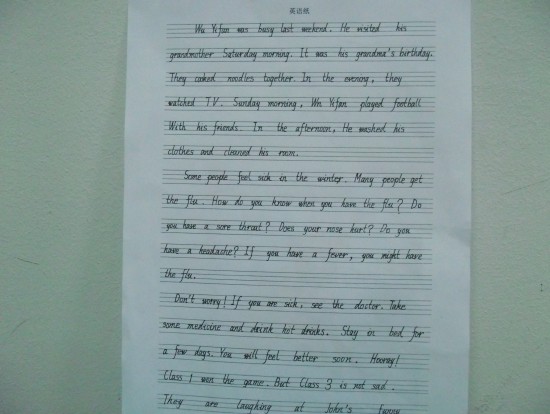 英语纸
Wu Yifan was busy last weekend. He visited his
grandmother Saturday morning. It was his grandma's birthday.
They cooked noodles together. In the evening, they
watched TV. Sunday morning, Wu Yifan played football
With his friends. In the afternoon, He washed his
clothes and cleaned his room.
Some people feel sick in the winter. Many people get
the flu. How do you know when you have the flu? Do
you have a sore throat? Does your nose hurt? Do you
have a headache? If you have a fever, you might have
the flu.
Don't worry! If you are sick, see the doctor. Take
some medicine and drink hot drinks. Stay in bed for
a few days. You will feel better soon. Hooray!
Class 1 won the game. But Class 3 is not sad.
They are laughing at John's funny